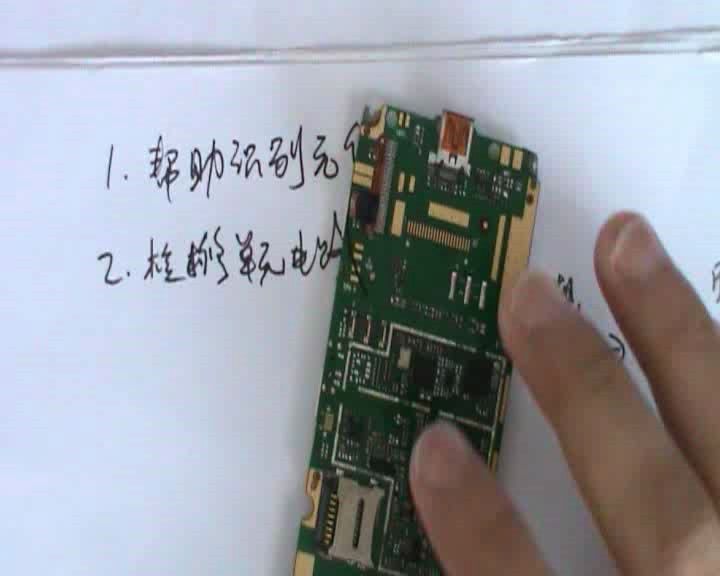 1. 帮助识别元
2. 检修单元电路